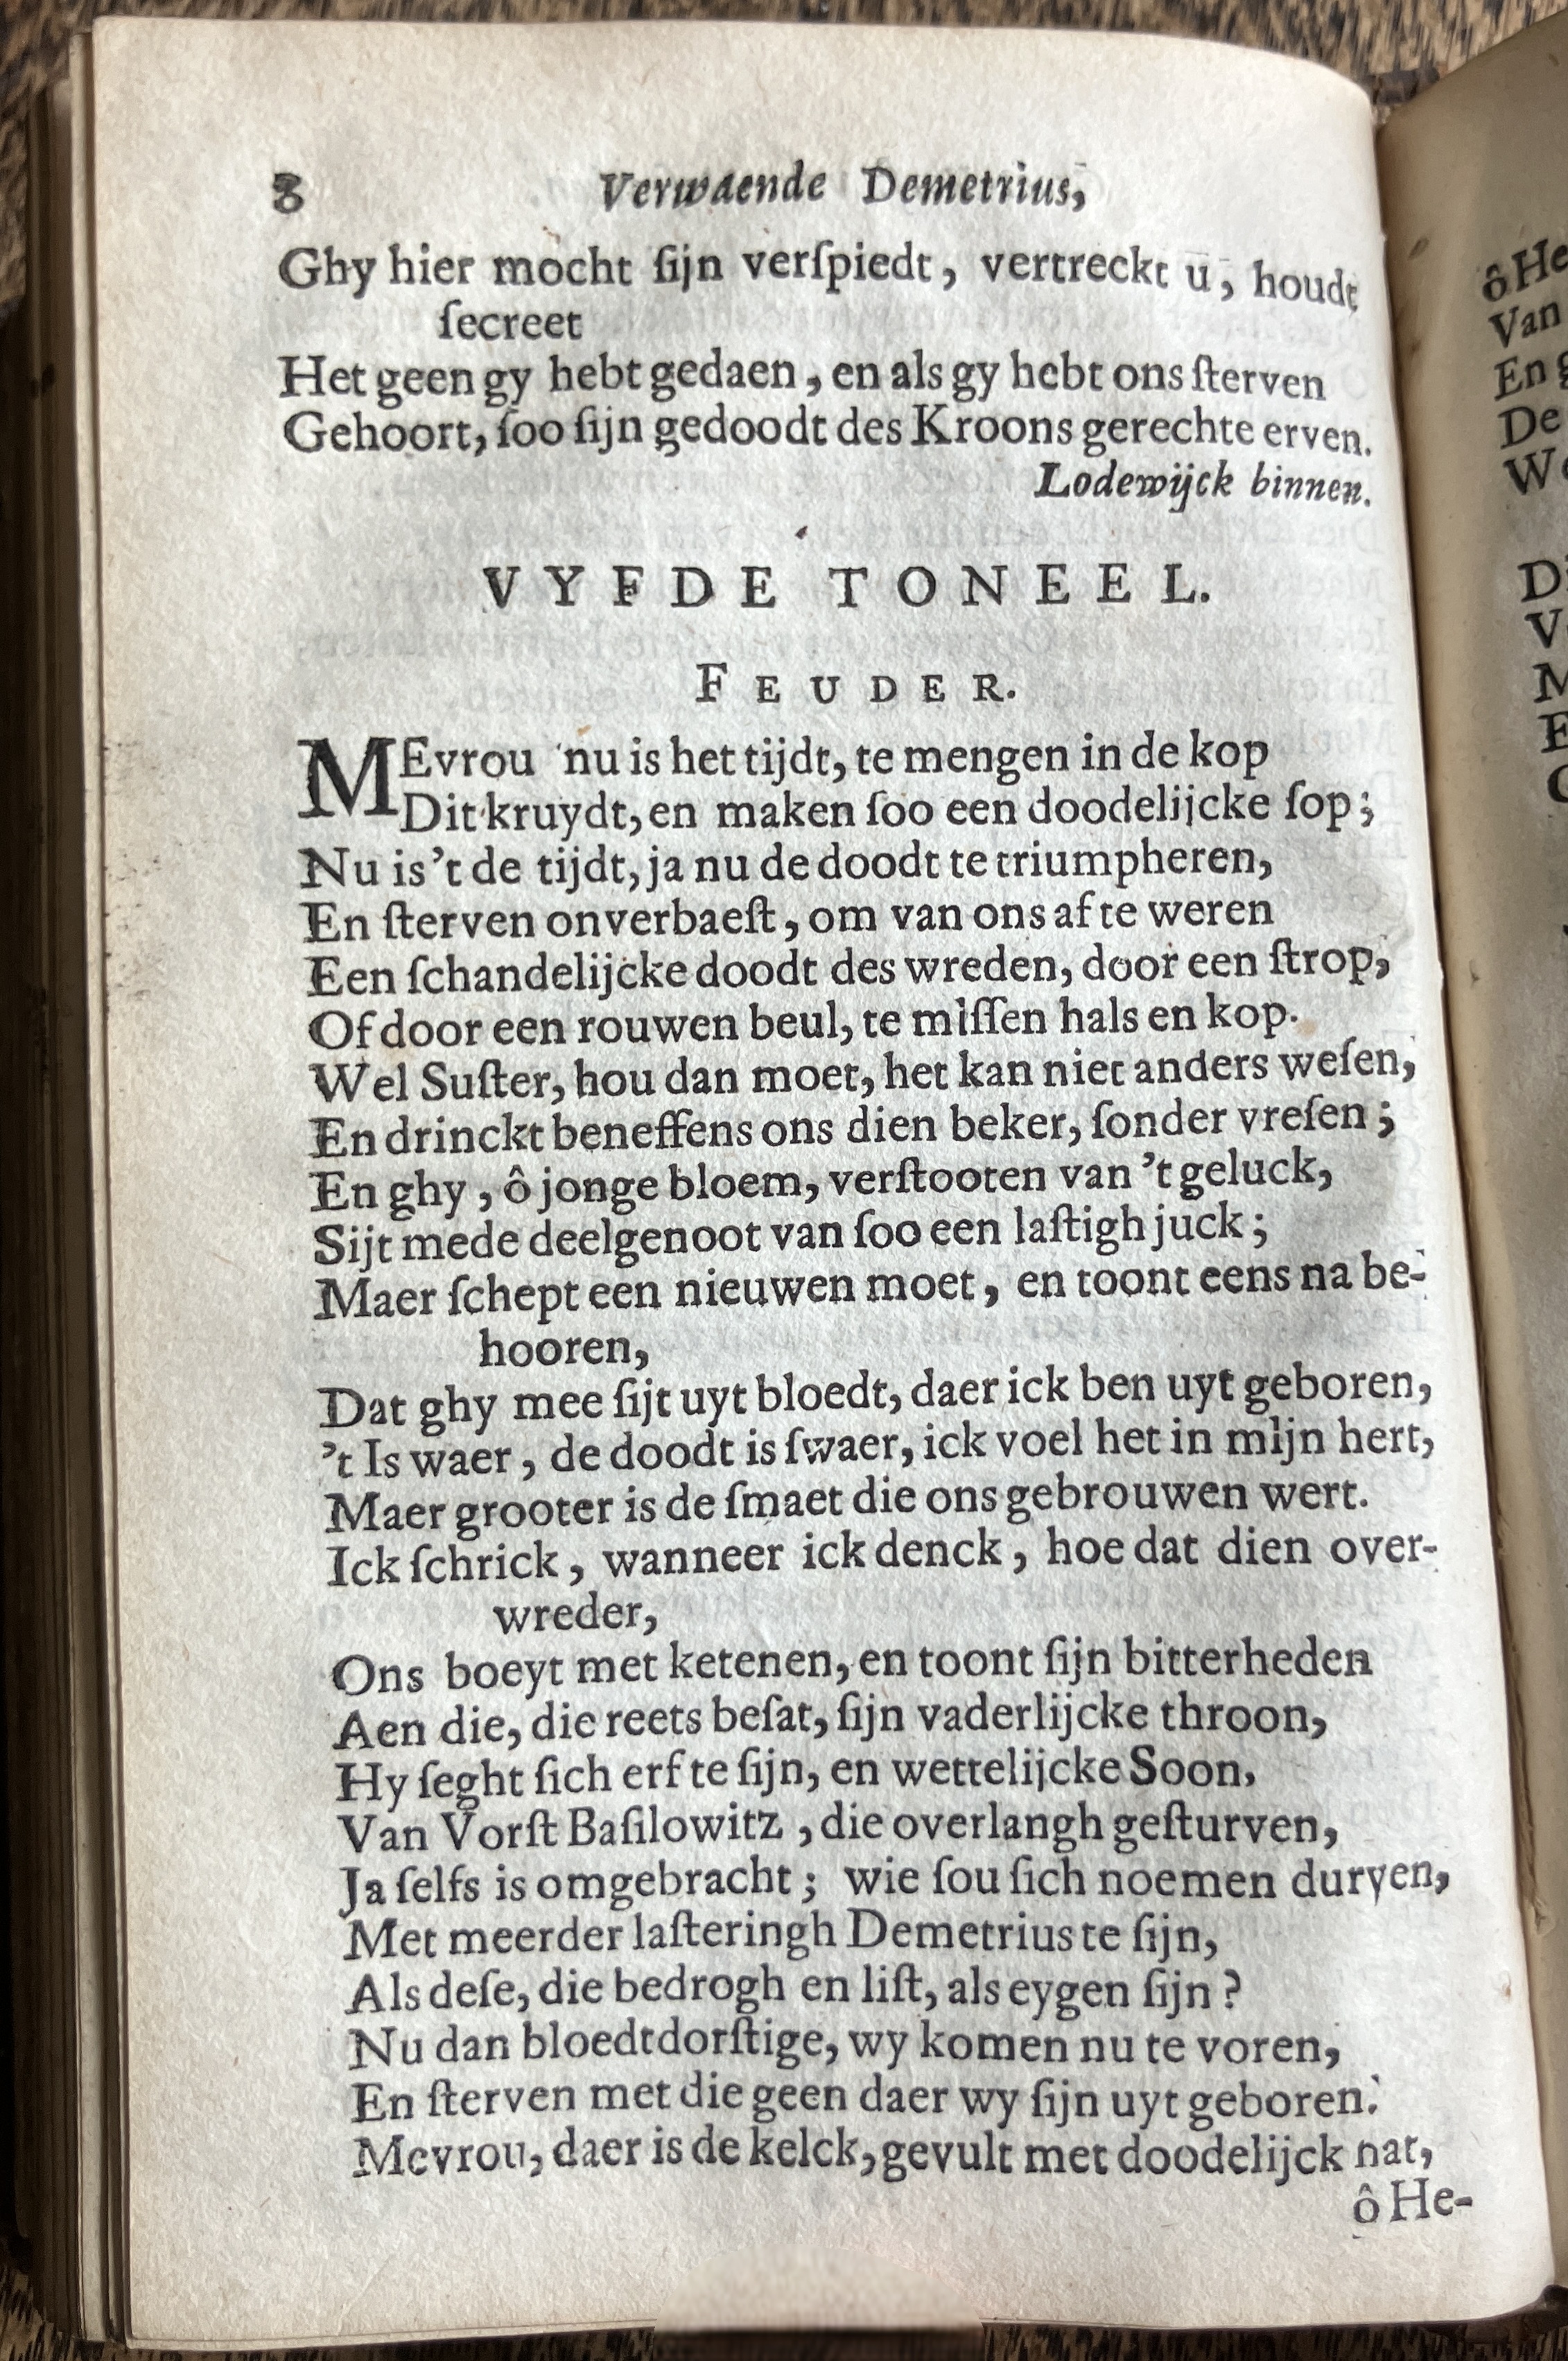 8 Verwaende Demetrius,
Ghy hier mocht ſijn verſpiedt, vertreckt u, houdt
ſecreet
Het geen gy hebt gedaen, en als gy hebt ons ſterven
Gehoort, ſoo ſijn gedoodt des Kroons gerechte erven.
Lodewijck binnen.
VYFDE TONEEL.
FEUDER.
MEvrou nu is het tijdt, te mengen in de kop
Dit kruydt, en maken ſoo een doodelijcke ſop;
Nu is 't de tijdt, ja nu de doodt te triumpheren,
En ſterven onverbaeſt, om van ons af te weren
Een ſchandelijcke doodt des wreden, door een ſtrop,
Of door een rouwen beul, te miſſen hals en kop.
Wel Suſter, hou dan moet, het kan niet anders weſen,
En drinckt beneffens ons dien beker, ſonder vreſen;
En ghy, ô jonge bloem, verſtooten van 't geluck,
Sijt mede deelgenoot van ſoo een laſtigh juck;
Maer ſchept een nieuwen moet, en toont eens na be-
hooren,
Dat ghy mee ſijt uyt bloedt, daer ick ben uyt geboren,
't Is waer, de doodt is ſwaer, ick voel het in mijn hert,
Maer grooter is de ſmaet die ons gebrouwen wert.
Ick ſchrick, wanneer ick denck, hoe dat dien over-
wreder,
Ons boeyt met ketenen, en toont ſijn bitterheden
Aen die, die reets beſat, ſijn vaderlijcke throon,
Hy ſeght ſich erf te ſijn, en wettelijcke Soon,
Van Vorſt Baſilowitz, die overlangh geſturven,
Ja ſelfs is omgebracht; wie ſou ſich noemen durven,
Met meerder laſteringh Demetrius te ſijn,
Als deſe, die bedrogh en liſt, als eygen ſijn?
Nu dan bloedtdorſtige, wy komen nu te voren,
En ſterven met die geen daer wy ſijn uyt geboren.
Mevrou, daer is de kelck, gevult met doodelijck nat,
ô He-
ô He
Van
En
De